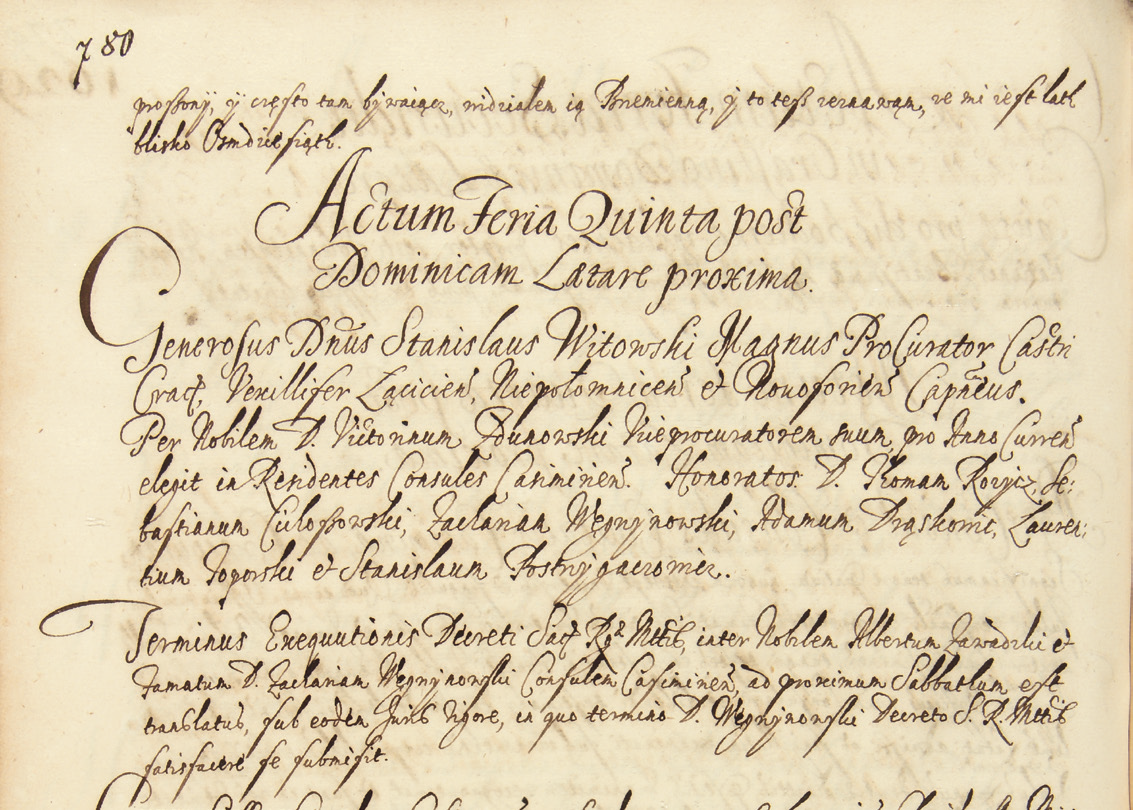 780
prostony, y często tam bywaiąc, widziałem ią Brzemienną, y to tesz zeznawam, ze mi iest lath
blisko Osmdziesiąth.
Actum Feria Quinta post
Dominicam Lætare proxima.
Generosus Dnus Stanislaus Witowski Magnus ProCurator Castri
Crac, Vexillifer Łąciciens, Niepołomnicen et Novoforien Capneus.
Per Nobilem D. Victorinum Zdunowski Viceprocuratorem suum, pro Anno Curren
elegit in Residentes Consules Casimirien. Honoratos D. Thomam Rozycz, Se:
bastianum Ciclossowski, Zachariam Węgrzynowski, Adamum Drąszkowic, Lauren:
tium Toporski et Stanislaum Postrzygaczowicz.
Terminus Exequutionis Decreti Sac Rg Mttis, inter Nobilem Albertum Zawadzki et
Famatum D. Zachariam Węgrzynowski Consulem Casimirien, ad proximum Sabbathum est
translatus, sub eodem Juris vigore, in quo termino D. Węgrzynowski Decreto S. R. Mttis
satisfacere se submisit.